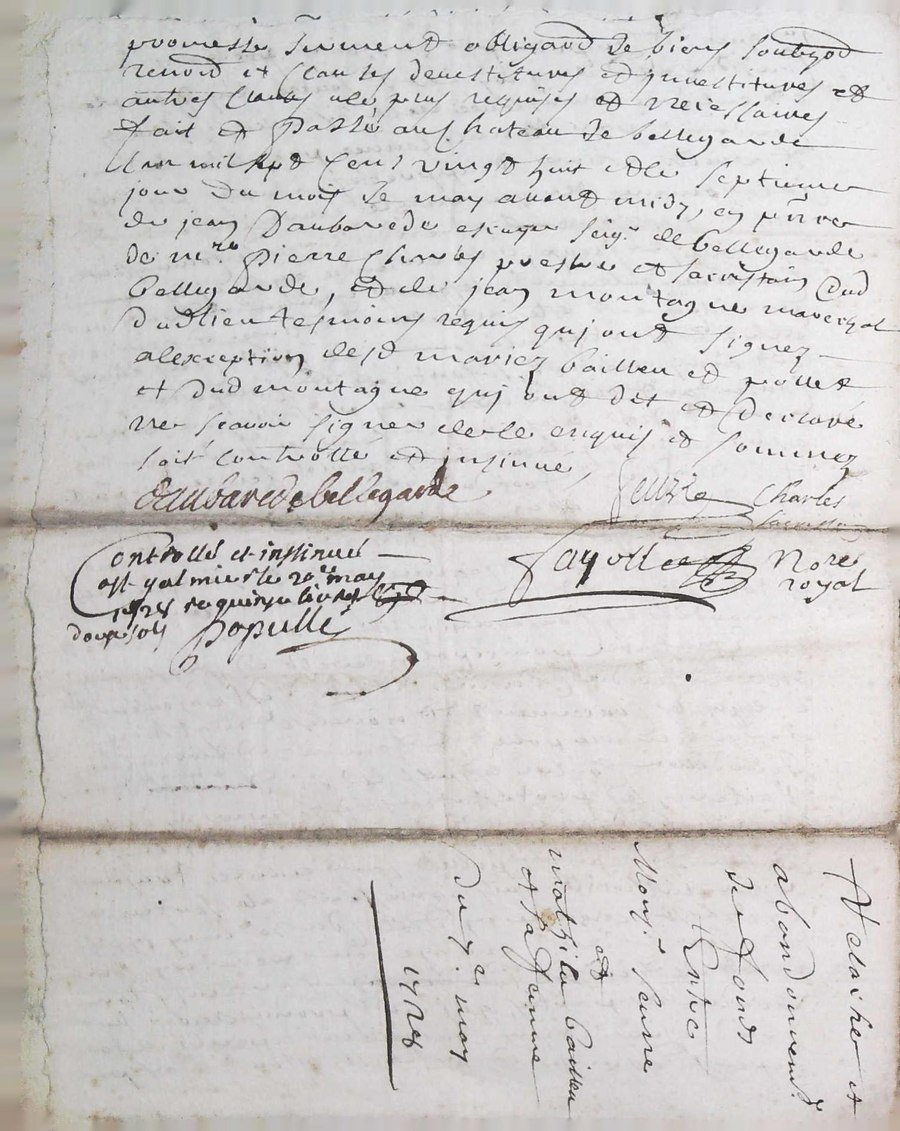 promesse serment obligaõn de biens soubzõn
renõn et clauses devestitures et investitures et
autres clauses les plus requises et necessaires
fait et passé au chateau de bellegarde
lan mil sept cent vingt huit et le septieme
jour du mois de may avant midy, en pñce
de jean Daubarede escuyer seigr. de bellegarde
de mre. pierre Charles prestre et sacristain dud
bellegarde, et de jean montagne mareschal
dudt lieu tesmoins requis qui ont signez
alexception desd mariez bailleu et
et dud montagne qui ont dit et declaré
ne scavoir signer de ce enquis et sommez
soit controllé et insinué
daubarede bellegarde
Jeuzre Charles
sacristain
Controllé et insinué
est galmier le 20e may
1728 re quinze livres
douze sols
populle
fayolle Nore
royal
Relaschet et
abandonnemt.
de fonds
Entre
Monsr. Jeusre
et
mathieu bailleu
et sa femme
Du 7e. may
1728